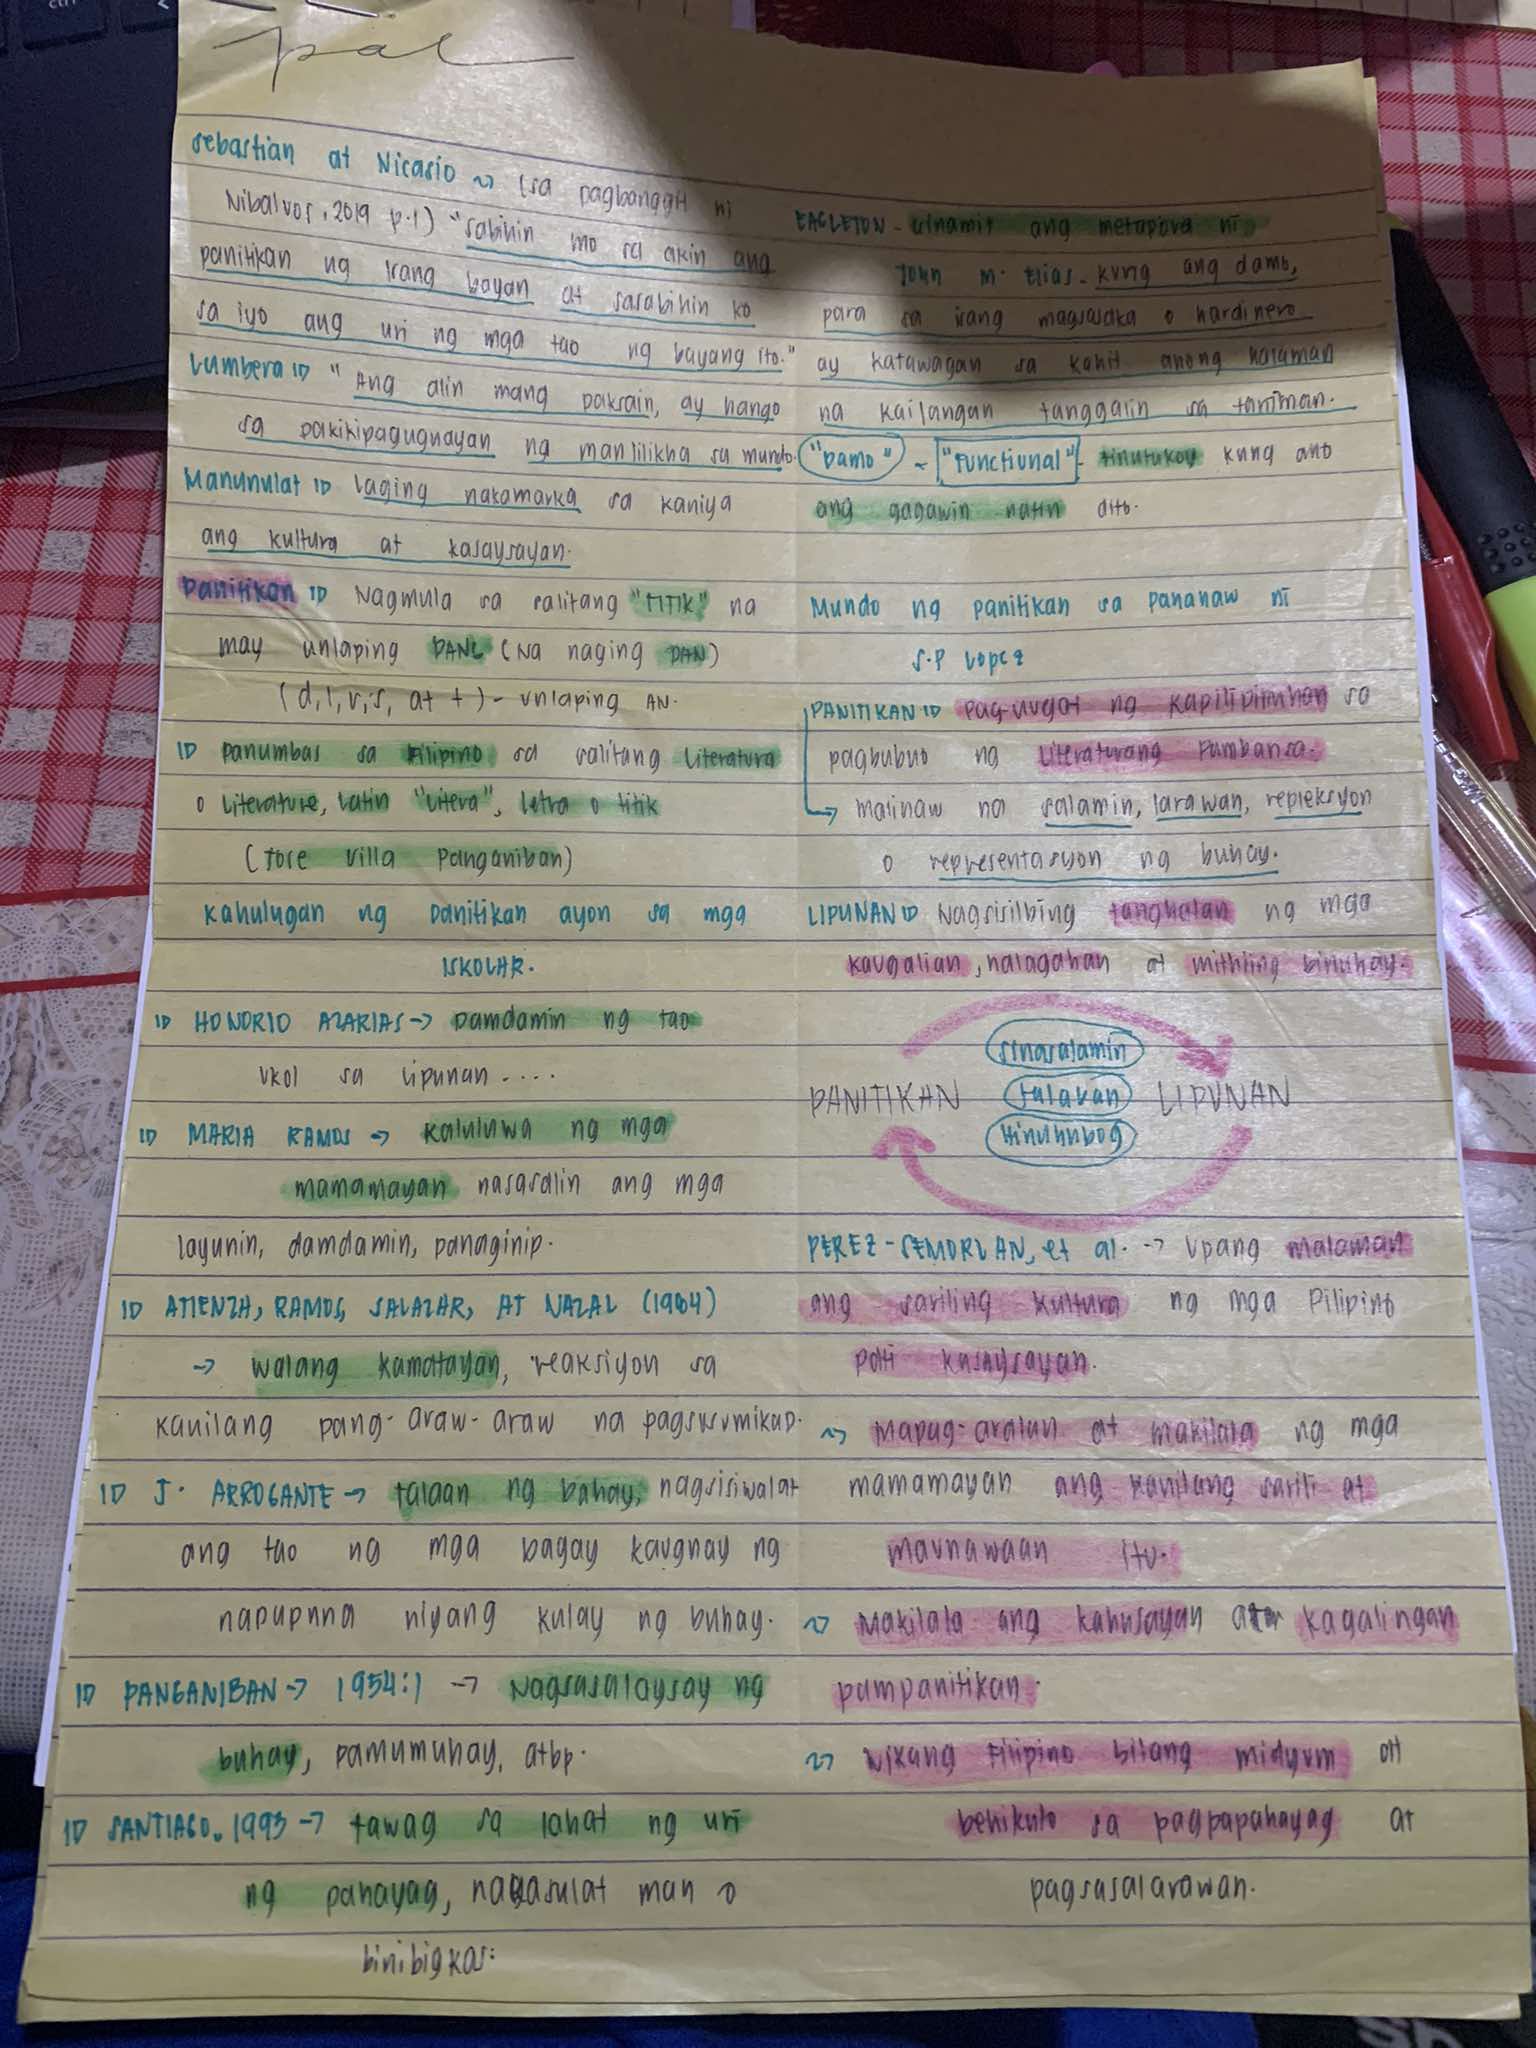 pal
sebastian at Nicasio ~> (sa pagbanggit ni
Nibalvos, 2019 p.1) "sabihin mo sa akin ang
panitikan ng isang bayan at sasabihin ko
sa iyo ang uri ng mga tao ng bayang ito."
Lumbera "Ang alin mang paksain, ay hango
sa pakikipagugnayan ng manlilikha sa mundo.
Manunulat laging nakamarka sa kaniya
ang kultura at kasaysayan.
Panitikan Nagmula sa salitang "TITIK" na
may unlaping PANG (Na naging PAN)
(d, l, r, s, at t) - unlaping AN.
panumbas sa Filipino sa salitang Literatura
o Literature, Latin "Litera", letra o titik
(Jose Villa Panganiban)
Kahulugan ng panitikan ayon sa mga
ISKOLAR.
HONORIO AZARIAS -> Damdamin ng tao
ukol sa Lipunan....
MARIA RAMOS -> Kaluluwa ng mga
mamamayan nasasalin ang mga
layunin, damdamin, panaginip.
ATIENZA, RAMOS, SALAZAR, AT NAZAL (1984)
-> walang kamatayan, reaksiyon sa
kanilang pang-araw-araw na pagsusumikap.
J. ARROGANTE -> talaan ng buhay, nagsisiwalat
ang tao ng mga bagay kaugnay ng
napupuna niyang kulay ng buhay.
PANGANIBAN -> 1954:1 -> Nagsasalaysay ng
buhay, pamumuhay, atbp.
SANTIAGO, 1993 -> tawag sa lahat ng uri
ng pahayag, nakasulat man o
binibigkas.
EAGLETON - Ginamit ang metapora ni
John M. Elias - kung ang damo,
para sa isang magsasaka o hardinero
ay katawagan sa kahit anong halaman
na kailangan tanggalin sa taniman.
"Damo" ~ "Functional" - tinutukoy kung ano
ang gagawin natin dito.
Mundo ng panitikan sa pananaw ni
S.P Lopez
PANITIKAN pag-uugat ng kapilipinuhan sa
pagbubuo ng Literaturang Pambansa.
malinaw na salamin, larawan, repleksyon
o representasyon ng buhay.
LIPUNAN Nagsisilbing tanghalan ng mga
kaugalian, halagahan at mithiing binuhay.
sinasalamin
PANITIKAN salauan LIPUNAN
Hinuhubog
PEREZ-SEMORLAN, et al. -> Upang malaman
ang sariling kultura ng mga Pilipino
pati kasaysayan.
~> Mapag-aralan at makilala ng mga
mamamayan ang kanilang sarili at
maunawaan ito.
~> Makilala ang kahusayan at kagalingan
pampanitikan.
~> Wikang Filipino bilang midyum at
behikulo sa pagpapahayag at
pagsasalarawan.